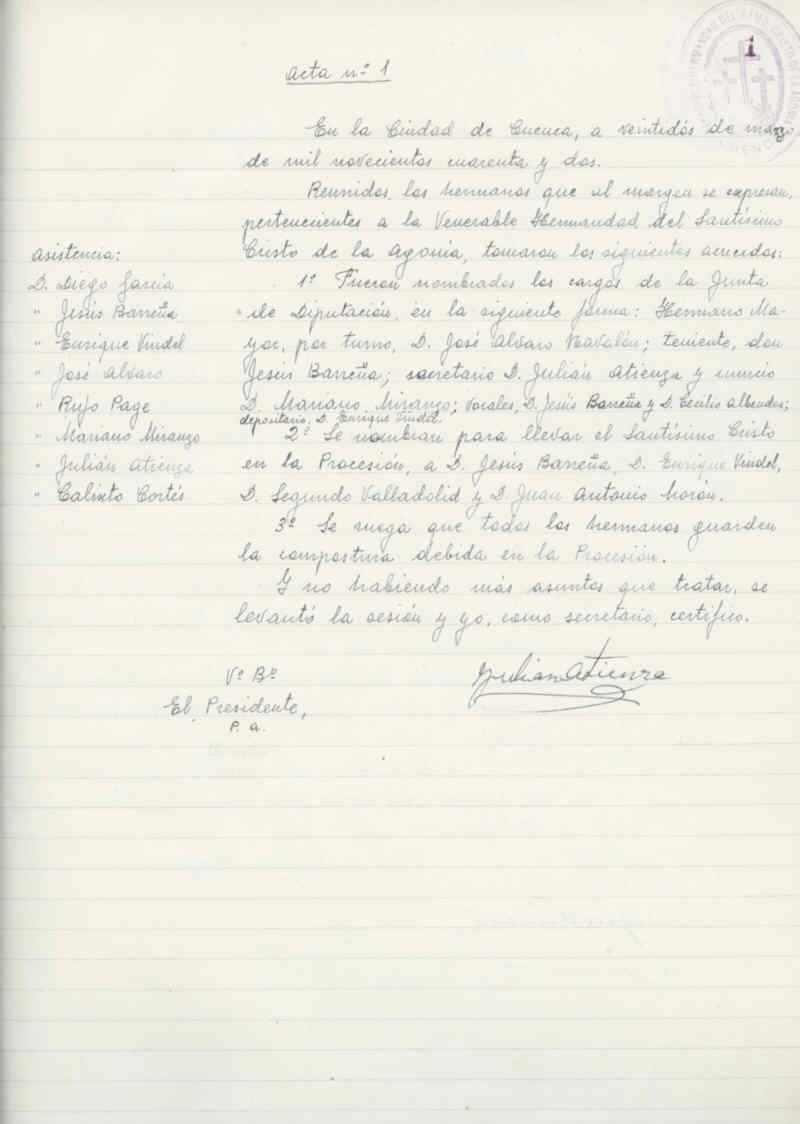 1
Acta nº 1
En la Ciudad de Cuenca, a veintidós de marzo
de mil novecientos cuarenta y dos.
Reunidos los hermanos que al margen se expresan,
pertenecientes a la Venerable Hermandad del Santísimo
Cristo de la Agonía, tomaron los siguientes acuerdos:
Asistencia:
D. Diego García
" Jesús Barreña
" Enrique Vindel
" José Alvaro
" Rufo Page
" Mariano Miranzo
" Julián Atienza
" Calixto Cortés
1º Fueron nombrados los cargos de la Junta
de Diputación, en la siguiente forma: Hermano Ma-
yor, por turno, D. José Alvaro Navalón; teniente, don
Jesús Barreña; secretario D. Julián Atienza y nuncio
D. Mariano Miranzo; vocales, D. Jesús Barreña y D. Cecilio Albendea;
depositario, D. Enrique Vindel.
2º Se nombran para llevar el Santísimo Cristo
en la Procesión, a D. Jesús Barreña, D. Enrique Vindel,
D. Segundo Valladolid y D. Juan Antonio Morón.
3º Se ruega que todos los hermanos guarden
la compostura debida en la Procesión.
Y no habiendo más asuntos que tratar, se
levantó la sesión y yo, como secretario, certifico.
Vº Bº
El Presidente,
P. a.
Julian Atienza